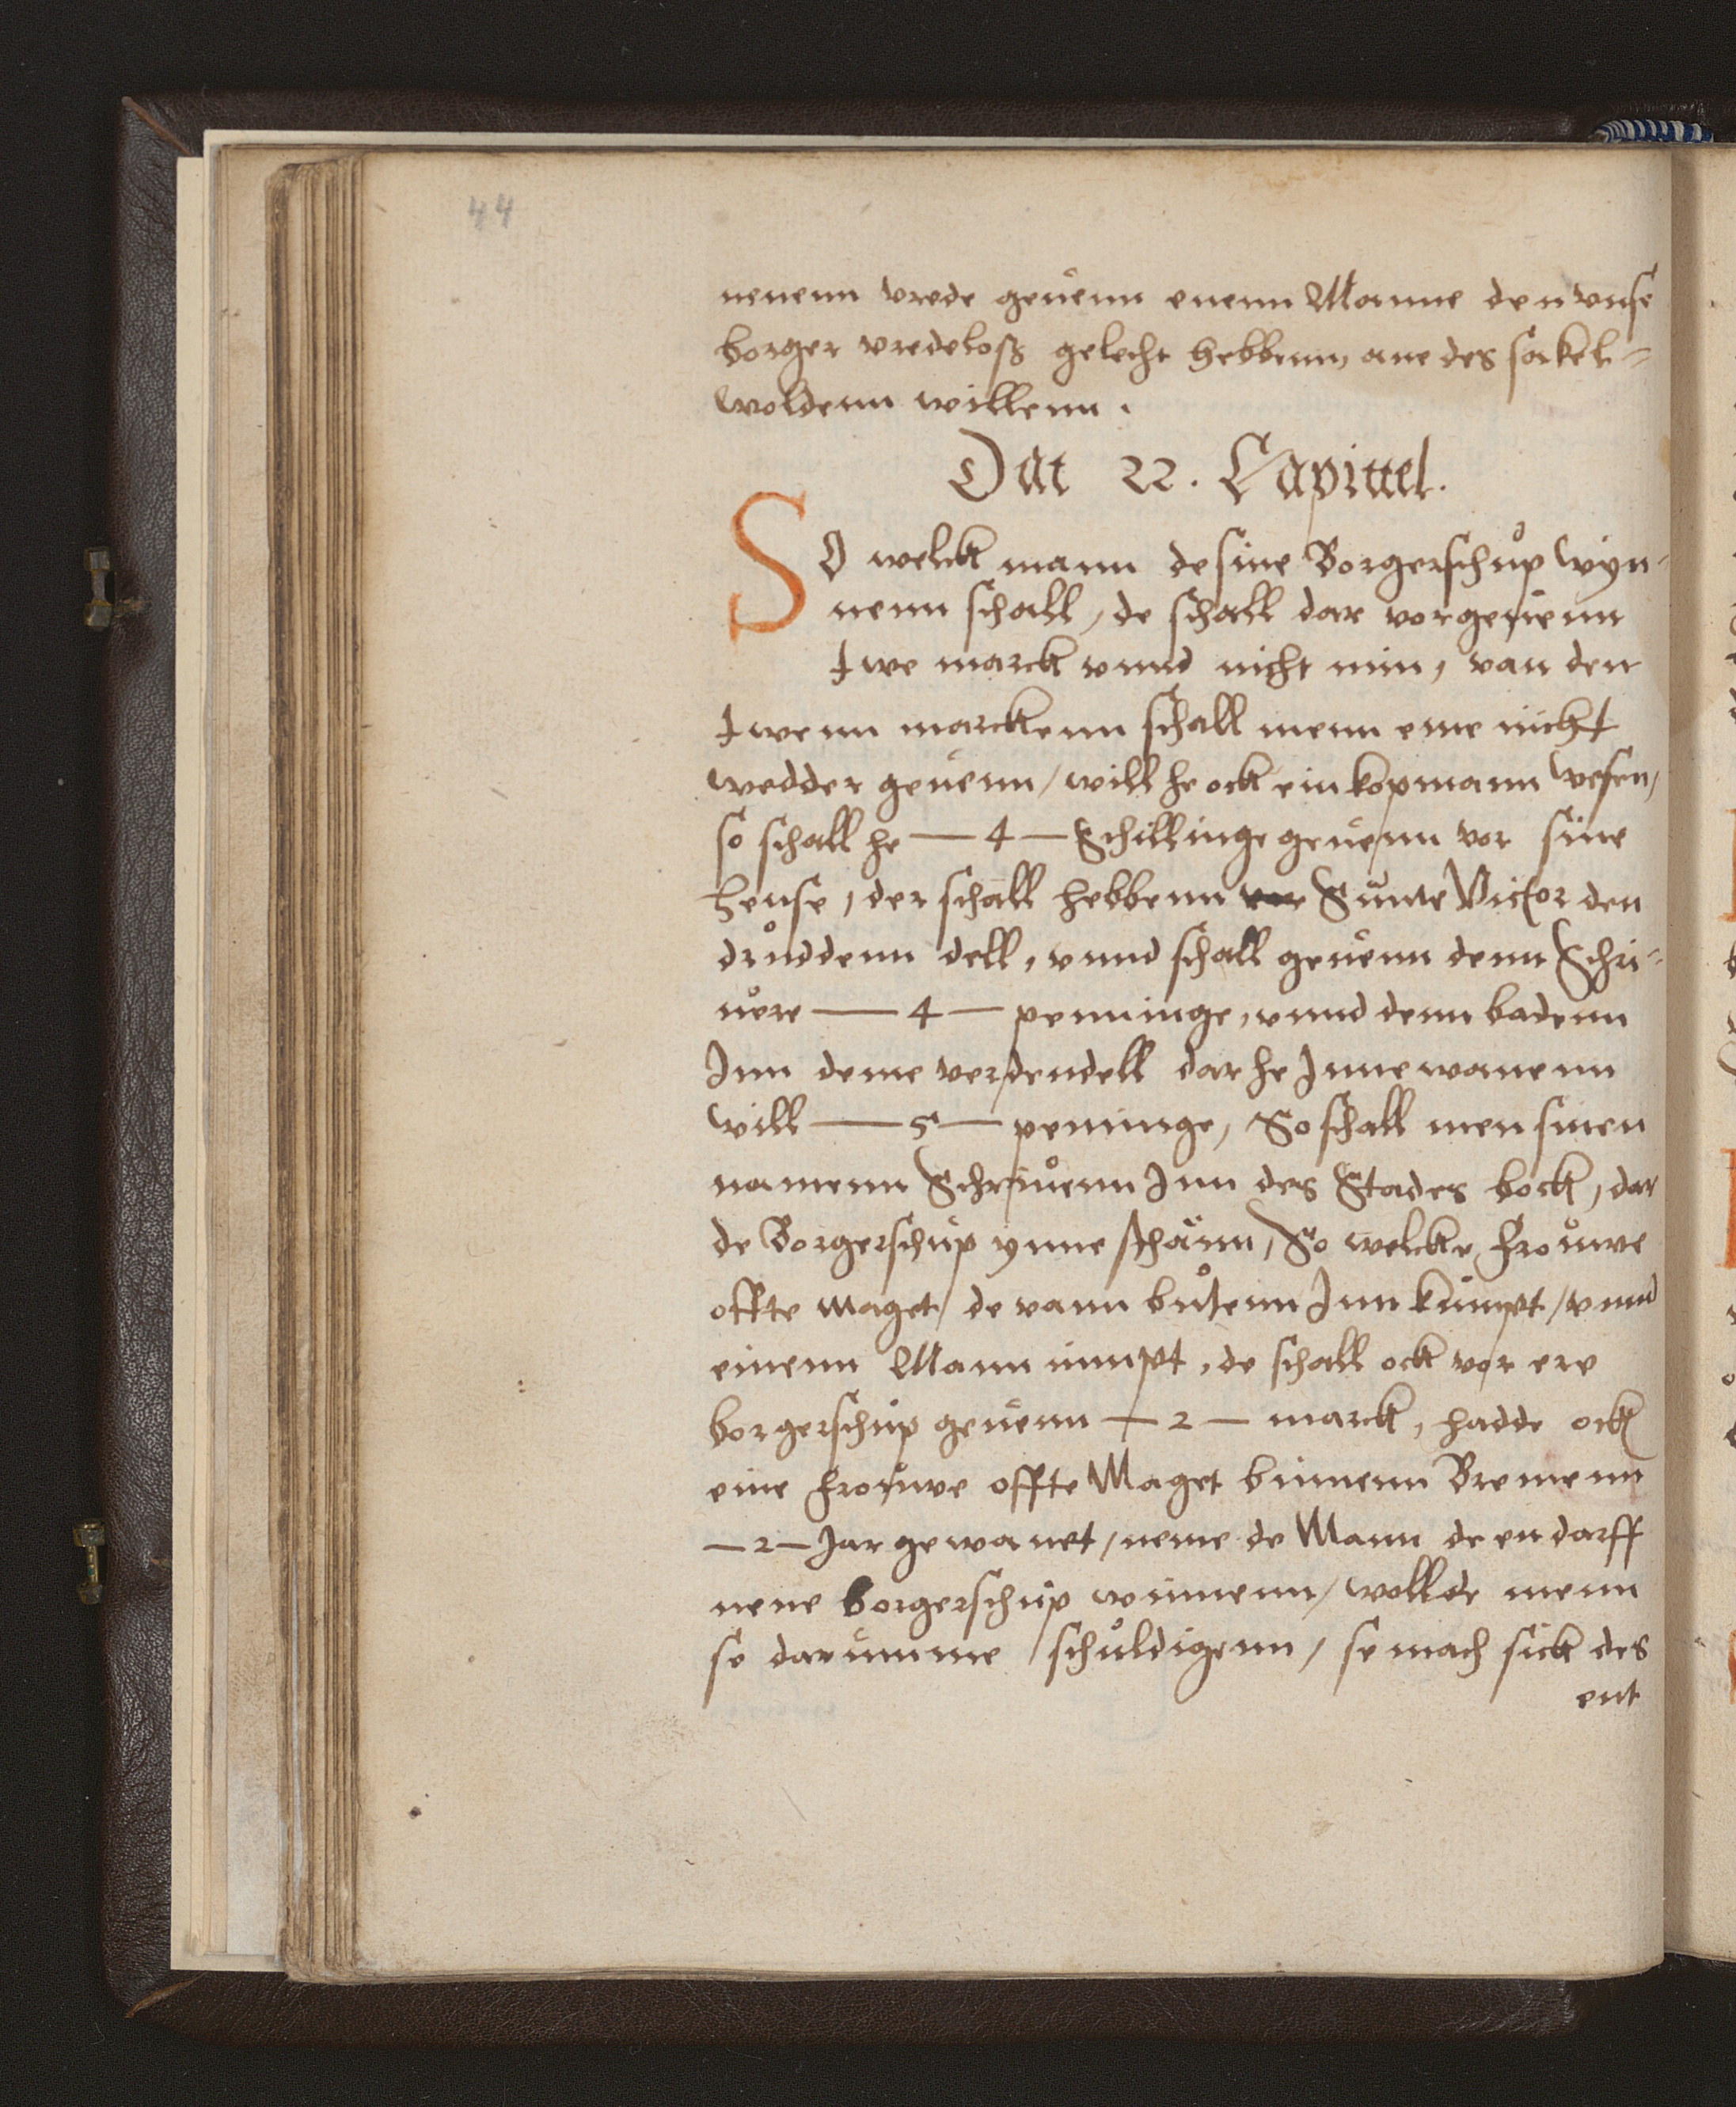 44
nenenn vrede geuenn enenn Manne den vnse
borger vredeloß gelecht hebbenn, ane des sakel=
woldenn willenn.
Dat 22. Capittel.
SO welck mann de sine Borgerschup wyn-
nenn schall, de schall dar vor geuenn
twe marck vnnd nicht min, van den
twenn marckenn schall menn eme nicht
wedder geuenn / will he ock ein kopmann wesen /
so schall he — 4 — Schillinge geuenn vor sine
hense, der schall hebbenn Sunte Victor den
druddenn dell, vnnd schall geuenn denn Schri=
uere — 4 — penninge, vnnd denn badenn
Inn deme verdendell dar he Inne wanenn
will — 5 — penninge, So schall men sinen
namenn Schriuenn Inn des Stades bock, dar
de Borgerschup ynne schann, So welcke Frouwe
offte maget / de vann butenn Inn kumpt / vnnd
einenn Mann nimpt, de schall ock vor ere
borgerschup geuenn — 2 — marck, hadde ock
eine Frouwe offte Maget binnenn Bremenn
— 2 — Jar gewanet / neme de Mann de en darff
nene borgerschup winnenn / wollde menn
se darumme schuldigenn / se mach sick des
ent